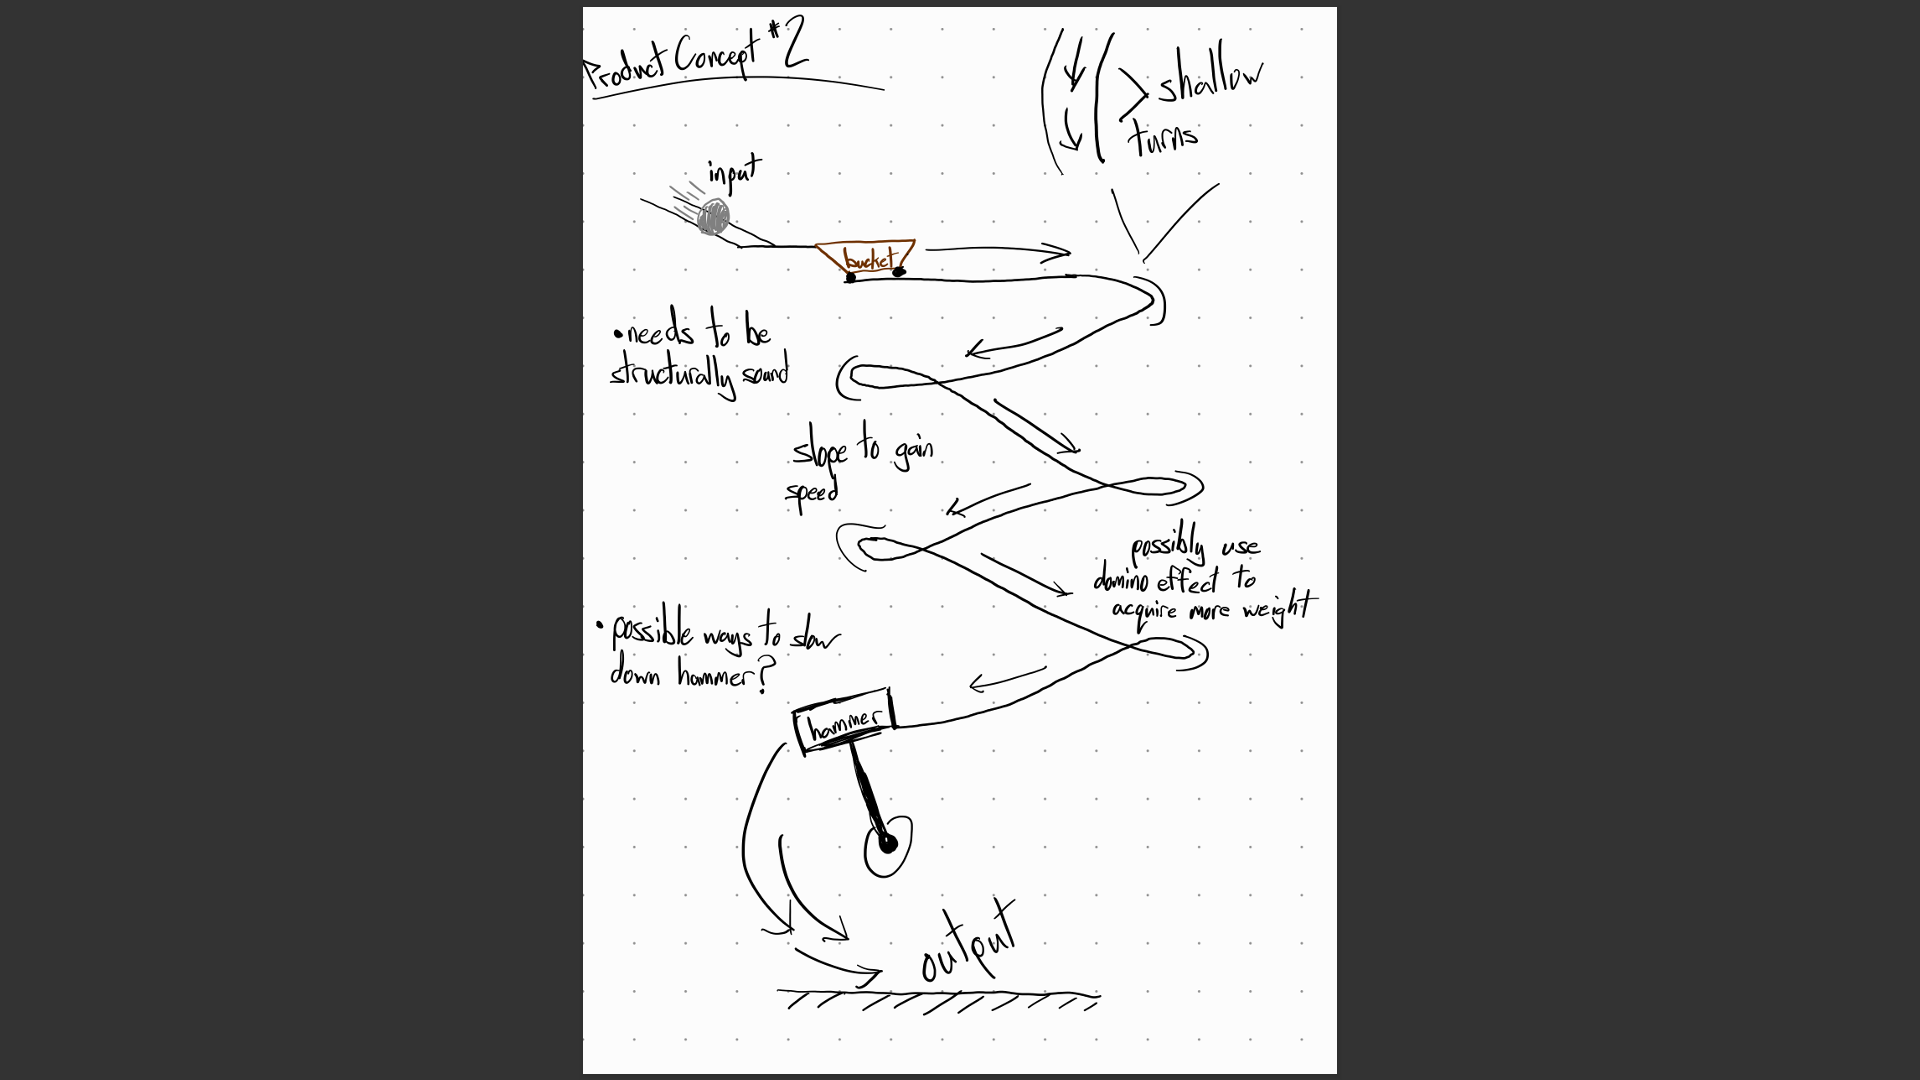 Product Concept #2
shallow
turns
input
bucket
•needs to be
structurally sound
slope to gain
speed
possibly use
domino effect to
acquire more weight
•possible ways to slow
down hammer?
hammer
output